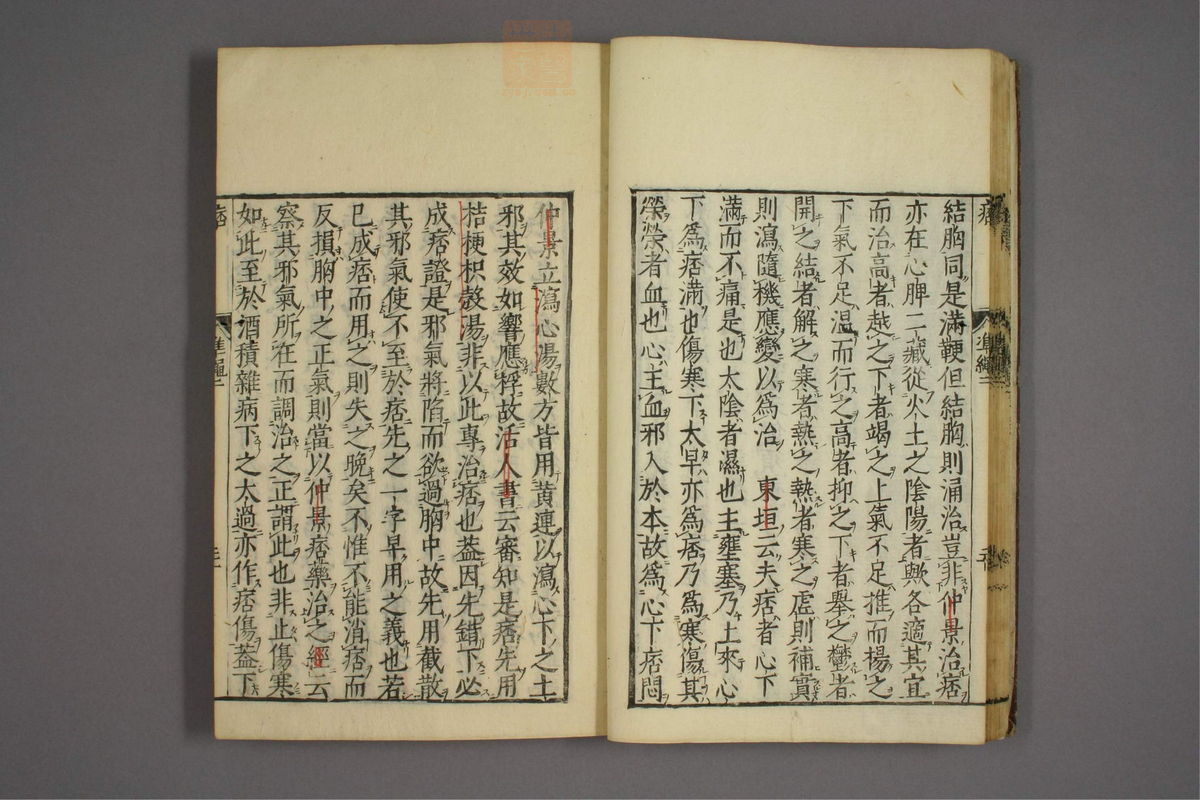 結胸同是滿鞕但結胸則涌治豈非仲景治痞
亦在心脾二藏從火土之陰陽者歟各適其宜
而治高者越之下者竭之上氣不足推而揚之
下氣不足温而行之高者抑之下者舉之鬱者
開之結者解之寒者熱之熱者寒之虛則補實
則瀉隨機應變以爲治 東垣云夫痞者心下
滿而不痛是也太陰者濕也主壅塞乃土來心
下爲痞滿也傷寒下太早亦爲痞乃爲寒傷其
榮榮者血也心主血邪入於本故爲心下痞悶
仲景立瀉心湯數方皆用黄連以瀉心下之土
邪其效如響應桴故活人書云審知是痞先用
桔梗枳殼湯非以此專治痞也蓋因先錯下必
成痞證是邪氣將陷而欲過胸中故先用截散
其邪氣使不至於痞先之一字早用之義也若
已成痞而用之則失之晚矣不惟不能消痞而
反損胸中之正氣則當以仲景痞藥治之經云
察其邪氣所在而調治之正謂此也非止傷寒
如此至於酒積雜病下之太過亦作痞傷蓋下